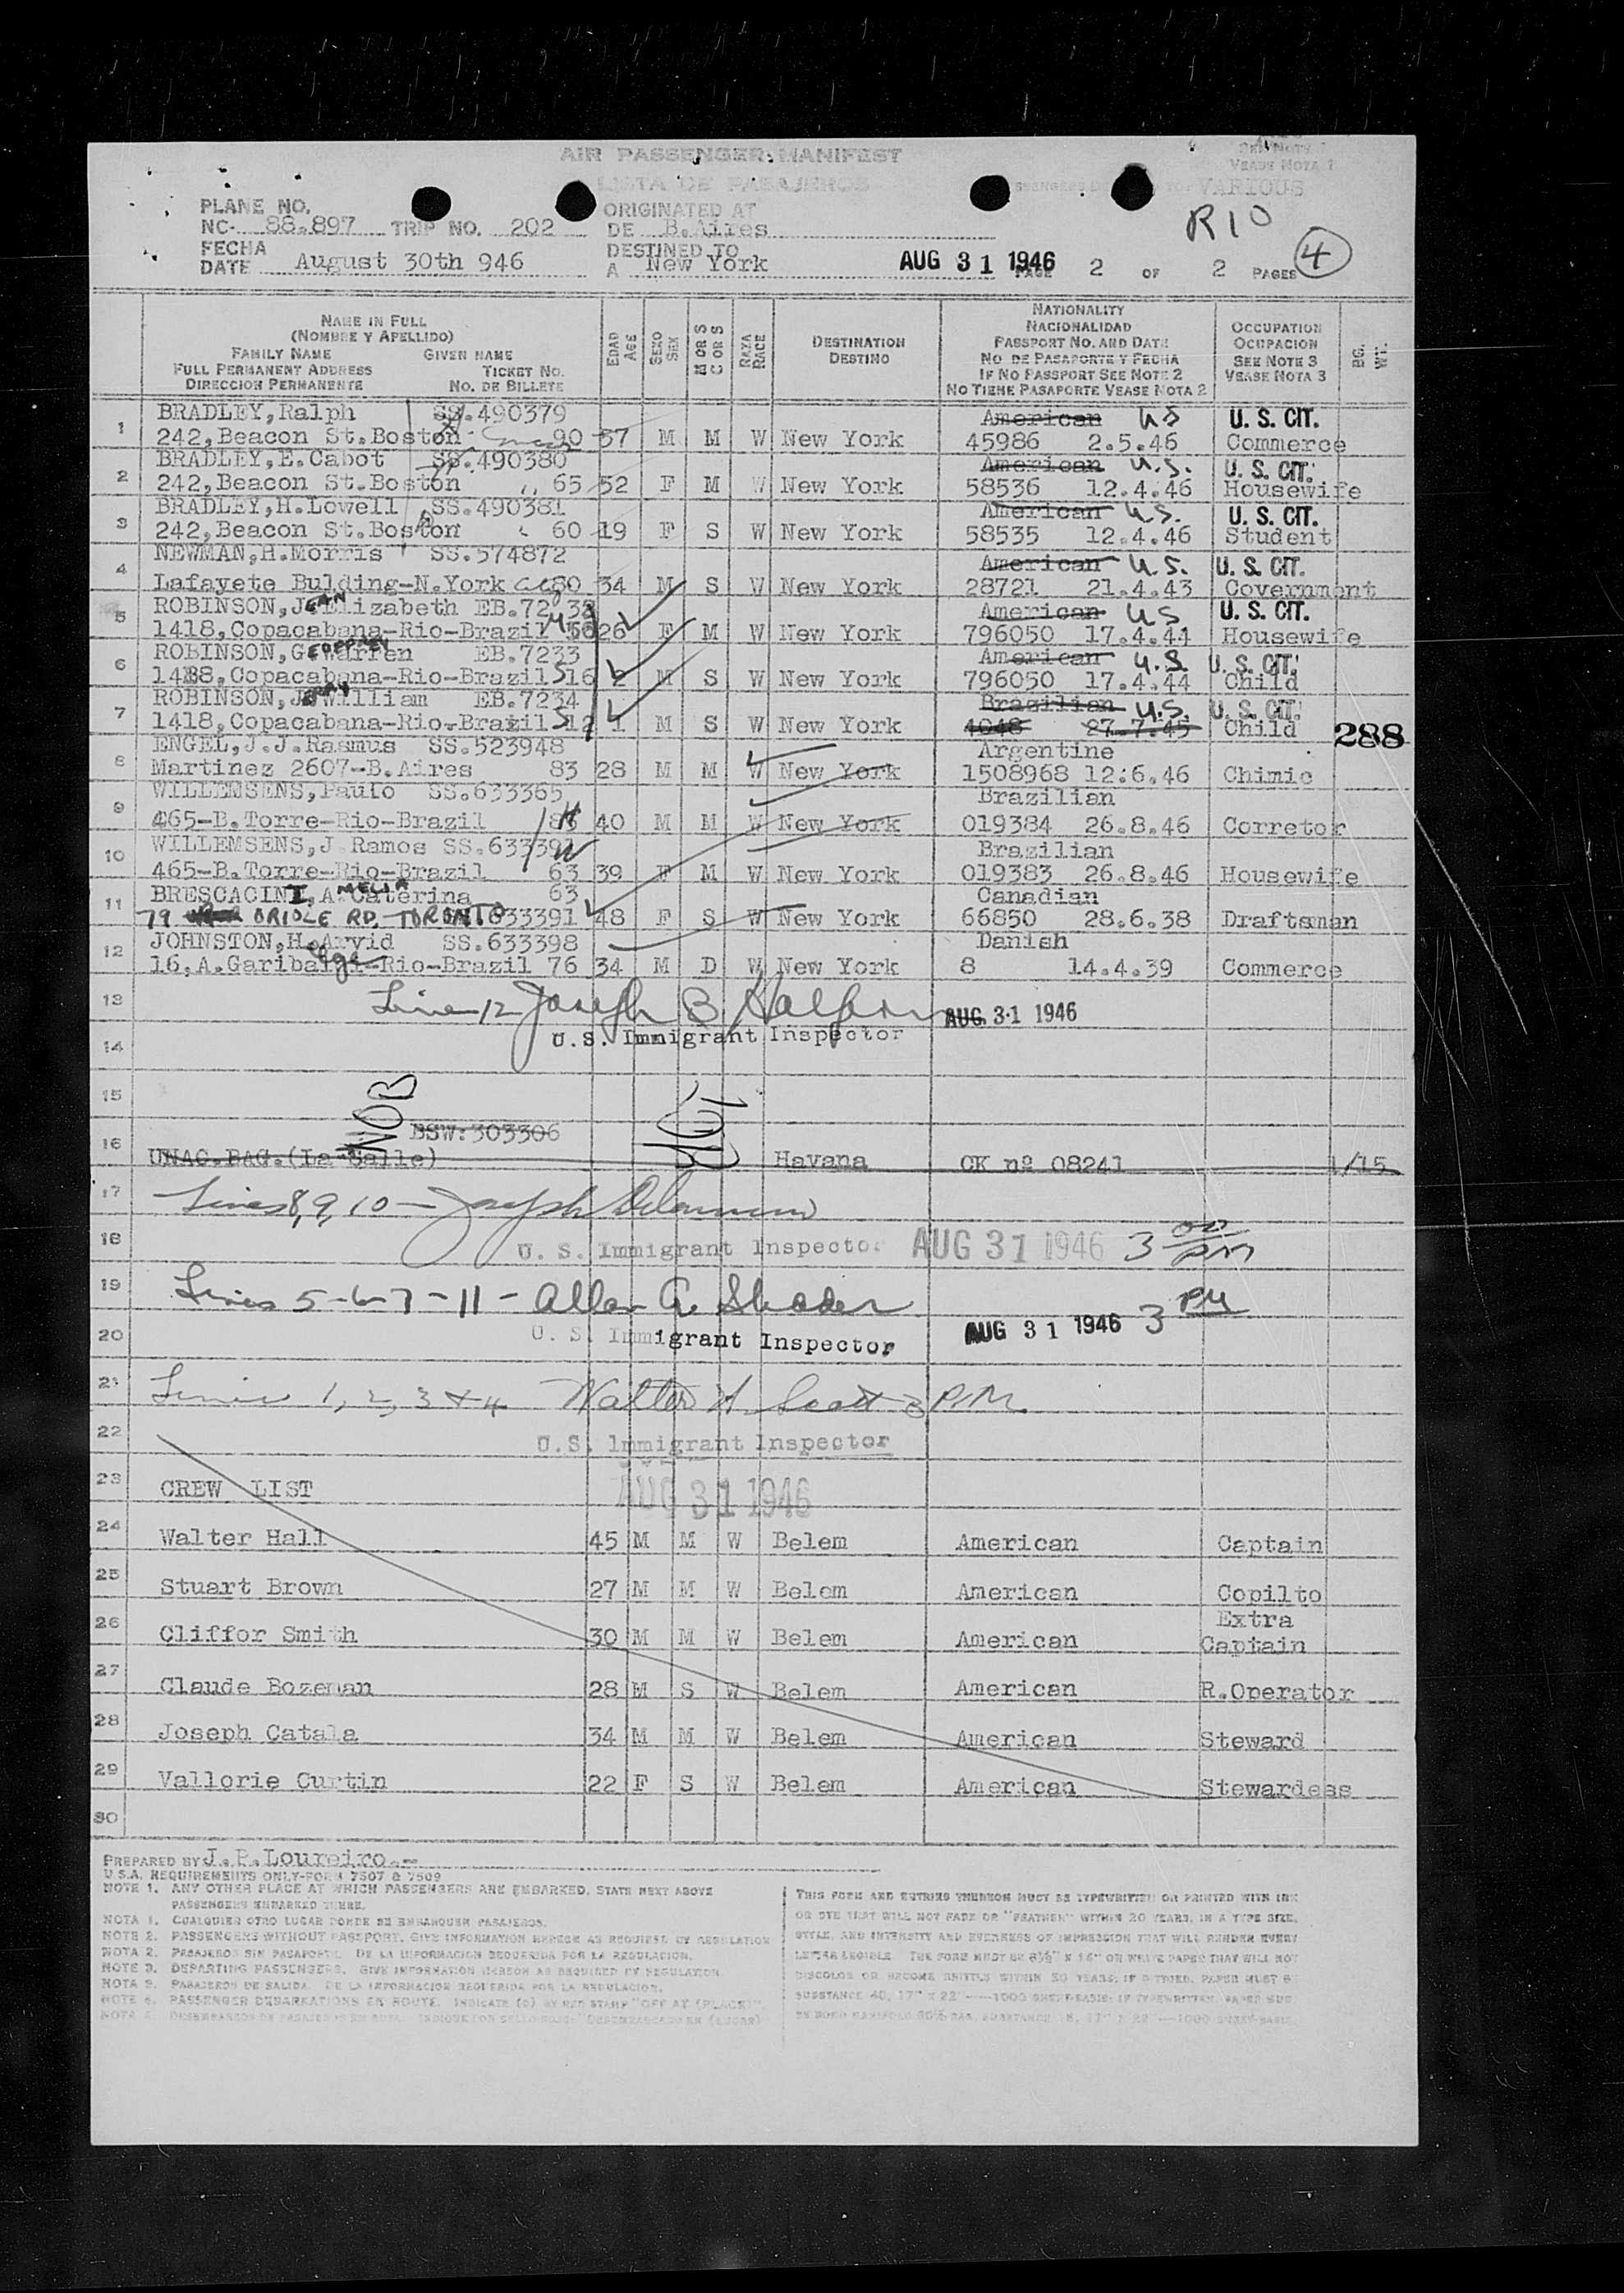 AIR PASSENGER MANIFEST
LISTA DE PASAJEROS
SEE NOTE 1
VEASE NOTA 1
VARIOUS
RIO
4
PLANE NO.
NC- 88.897 TRIP NO. 202
ORIGINATED AT
DE B.Aires
FECHA
DATE August 30th 946
DESTINED TO
A New York
AUG 31 1946
PAGE 2 OF 2 PAGES
NAME IN FULL
(NOMBRE Y APELLIDO)
FAMILY NAME GIVEN NAME
FULL PERMANENT ADDRESS TICKET NO.
DIRECCION PERMANENTE NO. DE BILLETE
EDAD AGE
SEXO SEX
M OR S
C OR S
RAZA RACE
DESTINATION
DESTINO
NATIONALITY
NACIONALIDAD
PASSPORT NO. AND DATE
NO. DE PASAPORTE Y FECHA
IF NO PASSPORT SEE NOTE 2
NO TIENE PASAPORTE VEASE NOTA 2
OCCUPATION
OCUPACION
SEE NOTE 3
VEASE NOTA 3
BG. WT.
1 BRADLEY,Ralph SS.490379 American US U. S. CIT.
242,Beacon St.Boston 90 57 M M W New York 45986 2.5.46 Commerce
2 BRADLEY,E.Cabot SS.490380 American U.S. U. S. CIT.
242,Beacon St.Boston 65 52 F M W New York 58536 12.4.46 Housewife
3 BRADLEY,H.Lowell SS.490381 American U.S. U. S. CIT.
242,Beacon St.Boston 60 19 F S W New York 58535 12.4.46 Student
4 NEWMAN,H.Morris SS.574872 American U.S. U. S. CIT.
Lafayete Bulding-N.York 80 34 M S W New York 28721 21.4.43 Government
5 ROBINSON,JEAN Elizabeth EB.7232 American US U. S. CIT.
1418,Copacabana-Rio-Brazil 26 F M W New York 796050 17.4.44 Housewife
6 ROBINSON,GEOFFREY Warren EB.7233 American U.S. U. S. CIT.
1418,Copacabana-Rio-Brazil 516 2 M S W New York 796050 17.4.44 Child
7 ROBINSON,JERRY William EB.7234 Brazilian U.S. U. S. CIT.
1418,Copacabana-Rio-Brazil 512 1 M S W New York 4048 27.7.45 Child 288
8 ENGEL,J.J.Rasmus SS.523948 Argentine
Martinez 2607-B.Aires 83 28 M M W New York 1508968 12.6.46 Chimic
9 WILLEMSENS,Paulo SS.633365 Brazilian
465-B.Torre-Rio-Brazil 83 H 40 M M W New York 019384 26.8.46 Corretor
10 WILLEMSENS,J Ramos SS.633391 W Brazilian
465-B.Torre-Rio-Brazil 63 39 F M W New York 019383 26.8.46 Housewife
11 BRESCACINI,AMELIA Caterina 63 Canadian
79 ORIOLE RD. TORONTO 633391 48 F S W New York 66850 28.6.38 Draftsman
12 JOHNSTON,H.Arvid SS.633398 Danish
16,A.Garibaldi-Rio-Brazil 76 34 M D W New York 8 14.4.39 Commerce
13 Line 12 Joseph B Halpern AUG 31 1946
U.S. Immigrant Inspector
14
15
NOB
BSW:303306
16 UNAC.BAG.(La Salle) Havana CK nº 08241 1/15
17 Lines 8,9,10 - Joseph
18 U. S. Immigrant Inspector AUG 31 1946 3 00 PM
19 Lines 5-6-7-11- Allan A. Shader
20 U. S. Immigrant Inspector AUG 31 1946 3 PM
21 Lines 1, 2, 3 & 4 Walter H. Scott 3 P.M.
22 U.S. Immigrant Inspector
23 CREW LIST AUG 31 1946
24 Walter Hall 45 M M W Belem American Captain
25 Stuart Brown 27 M M W Belem American Copilto
26 Cliffor Smith 30 M M W Belem American Extra Captain
27 Claude Bozeman 28 M S W Belem American R.Operator
28 Joseph Catala 34 M M W Belem American Steward
29 Vallorie Curtin 22 F S W Belem American Stewardess
30
PREPARED BY J.P.Loureiro.-
U S.A. REQUIREMENTS ONLY-FORM 7507 & 7509
NOTE 1. ANY OTHER PLACE AT WHICH PASSENGERS ARE EMBARKED, STATE NEXT ABOVE
PASSENGERS EMBARKED THERE.
NOTA 1. CUALQUIER OTRO LUGAR DONDE SE EMBARQUEN PASAJEROS.
NOTE 2. PASSENGERS WITHOUT PASSPORT. GIVE INFORMATION HEREON AS REQUIRED BY REGULATION
NOTA 2. PASAJEROS SIN PASAPORTE. DE LA INFORMACION REQUERIDA POR LA REGULACION.
NOTE 3. DEPARTING PASSENGERS. GIVE INFORMATION HEREON AS REQUIRED BY REGULATION.
NOTA 3. PASAJEROS DE SALIDA. DE LA INFORMACION REQUERIDA POR LA REGULACION.
NOTE 4. PASSENGER DEBARKATIONS EN ROUTE. INDICATE (D) BY RED STAMP "OFF AT (PLACE)".
THIS FORM AND ENTRIES THEREON MUST BE TYPEWRITTEN OR PRINTED WITH INK
OR DYE THAT WILL NOT FADE OR "FEATHER" WITHIN 20 YEARS, IN A TYPE SIZE,
STYLE, AND INTENSITY AND EVENNESS OF IMPRESSION THAT WILL RENDER EVERY
LETTER LEGIBLE THE FORM MUST BE 8½" X 14" ON WHITE PAPER THAT WILL NOT
DISCOLOR OR BECOME BRITTLE WITHIN 20 YEARS: IF DITTOED, PAPER MUST B
SUBSTANCE 40, 17" X 22"—1000 SHEET-BASIS: IF TYPEWRITTEN, PAPER MUS